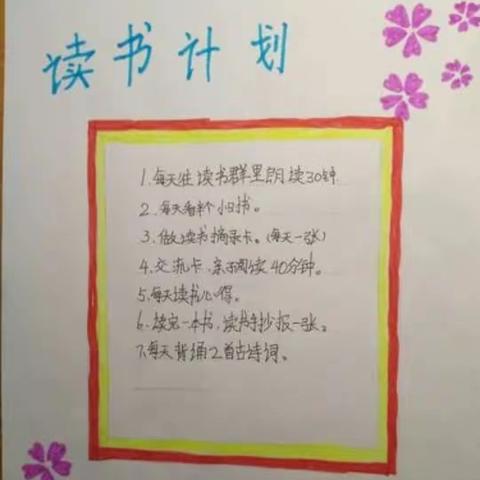 读书计划
1.每天在读书群里朗读30钟
2.每天看半个小时书。
3.做读书摘录卡。(每天一张)
4.交流卡.亲子阅读40分钟。
5.每天读书心得。
6.读完一本书,读书手抄报一张。
7.每天背诵2首古诗词。